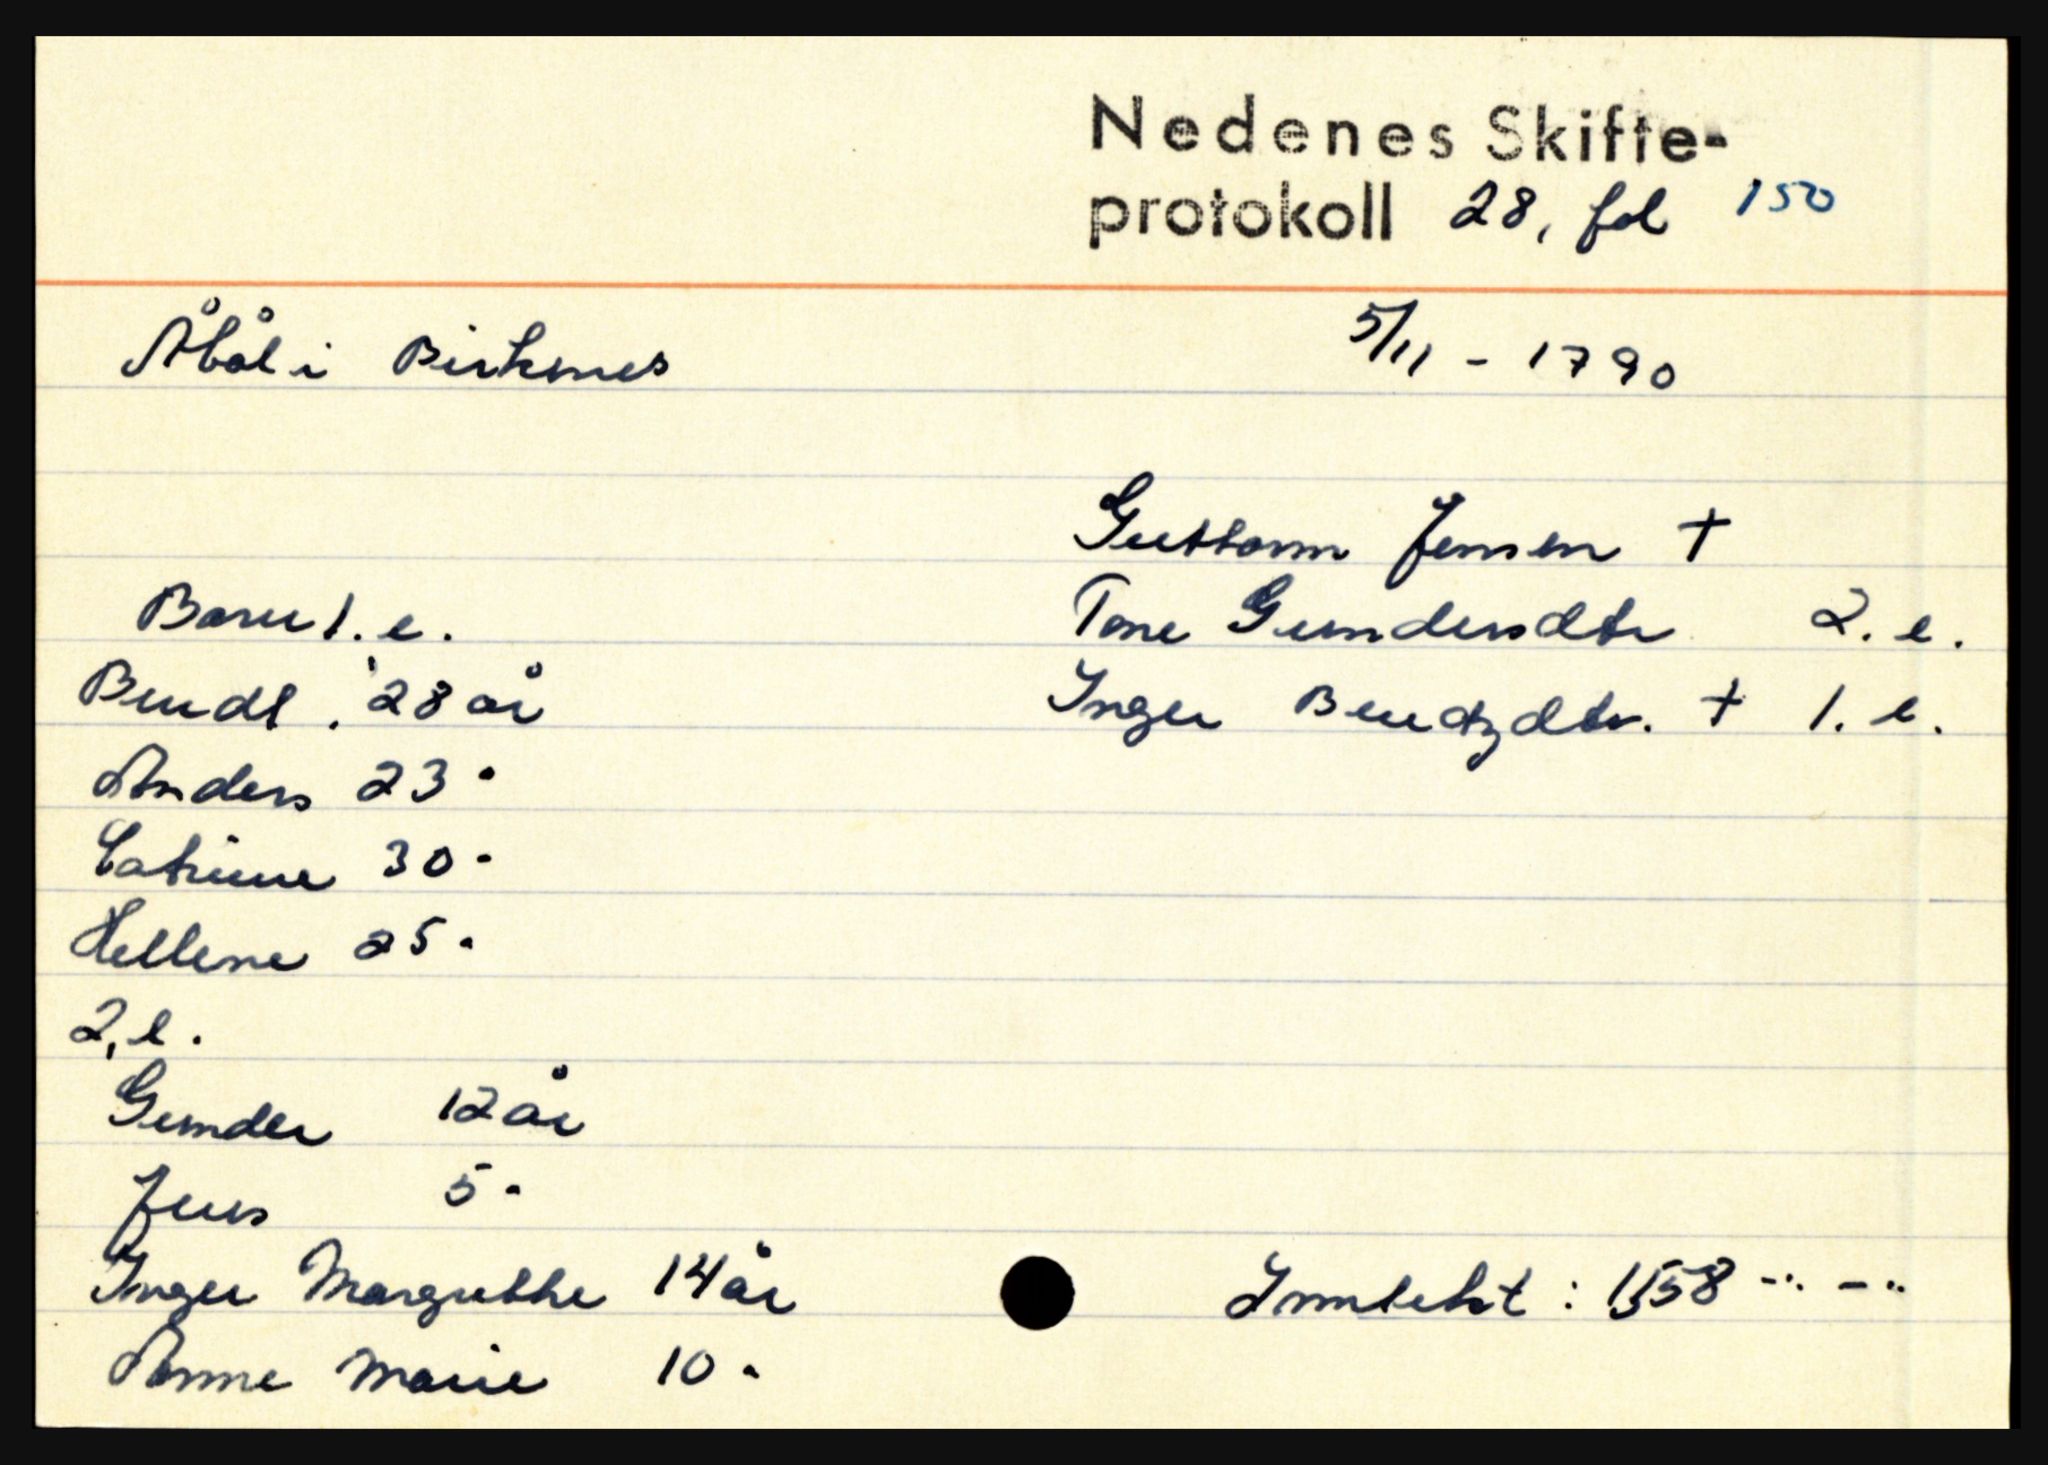 Nedenes Skifte-
protokoll 28, fol 150
Åbål i Birkenes 5/11 - 1790
Guttorm Jensen †
Tone Gundersdtr 2. e.
Inger Bendtzdtr. † 1. e.
Barn 1. e.
Bendt . 28 år
Anders 23 "
Catrine 30 "
Hellene 25 "
2, e.
Gunder 12 år
Jens 5 "
Inger Margrethe 14 år
Anne Marie 10 "
Inntekt : 158 - " - "